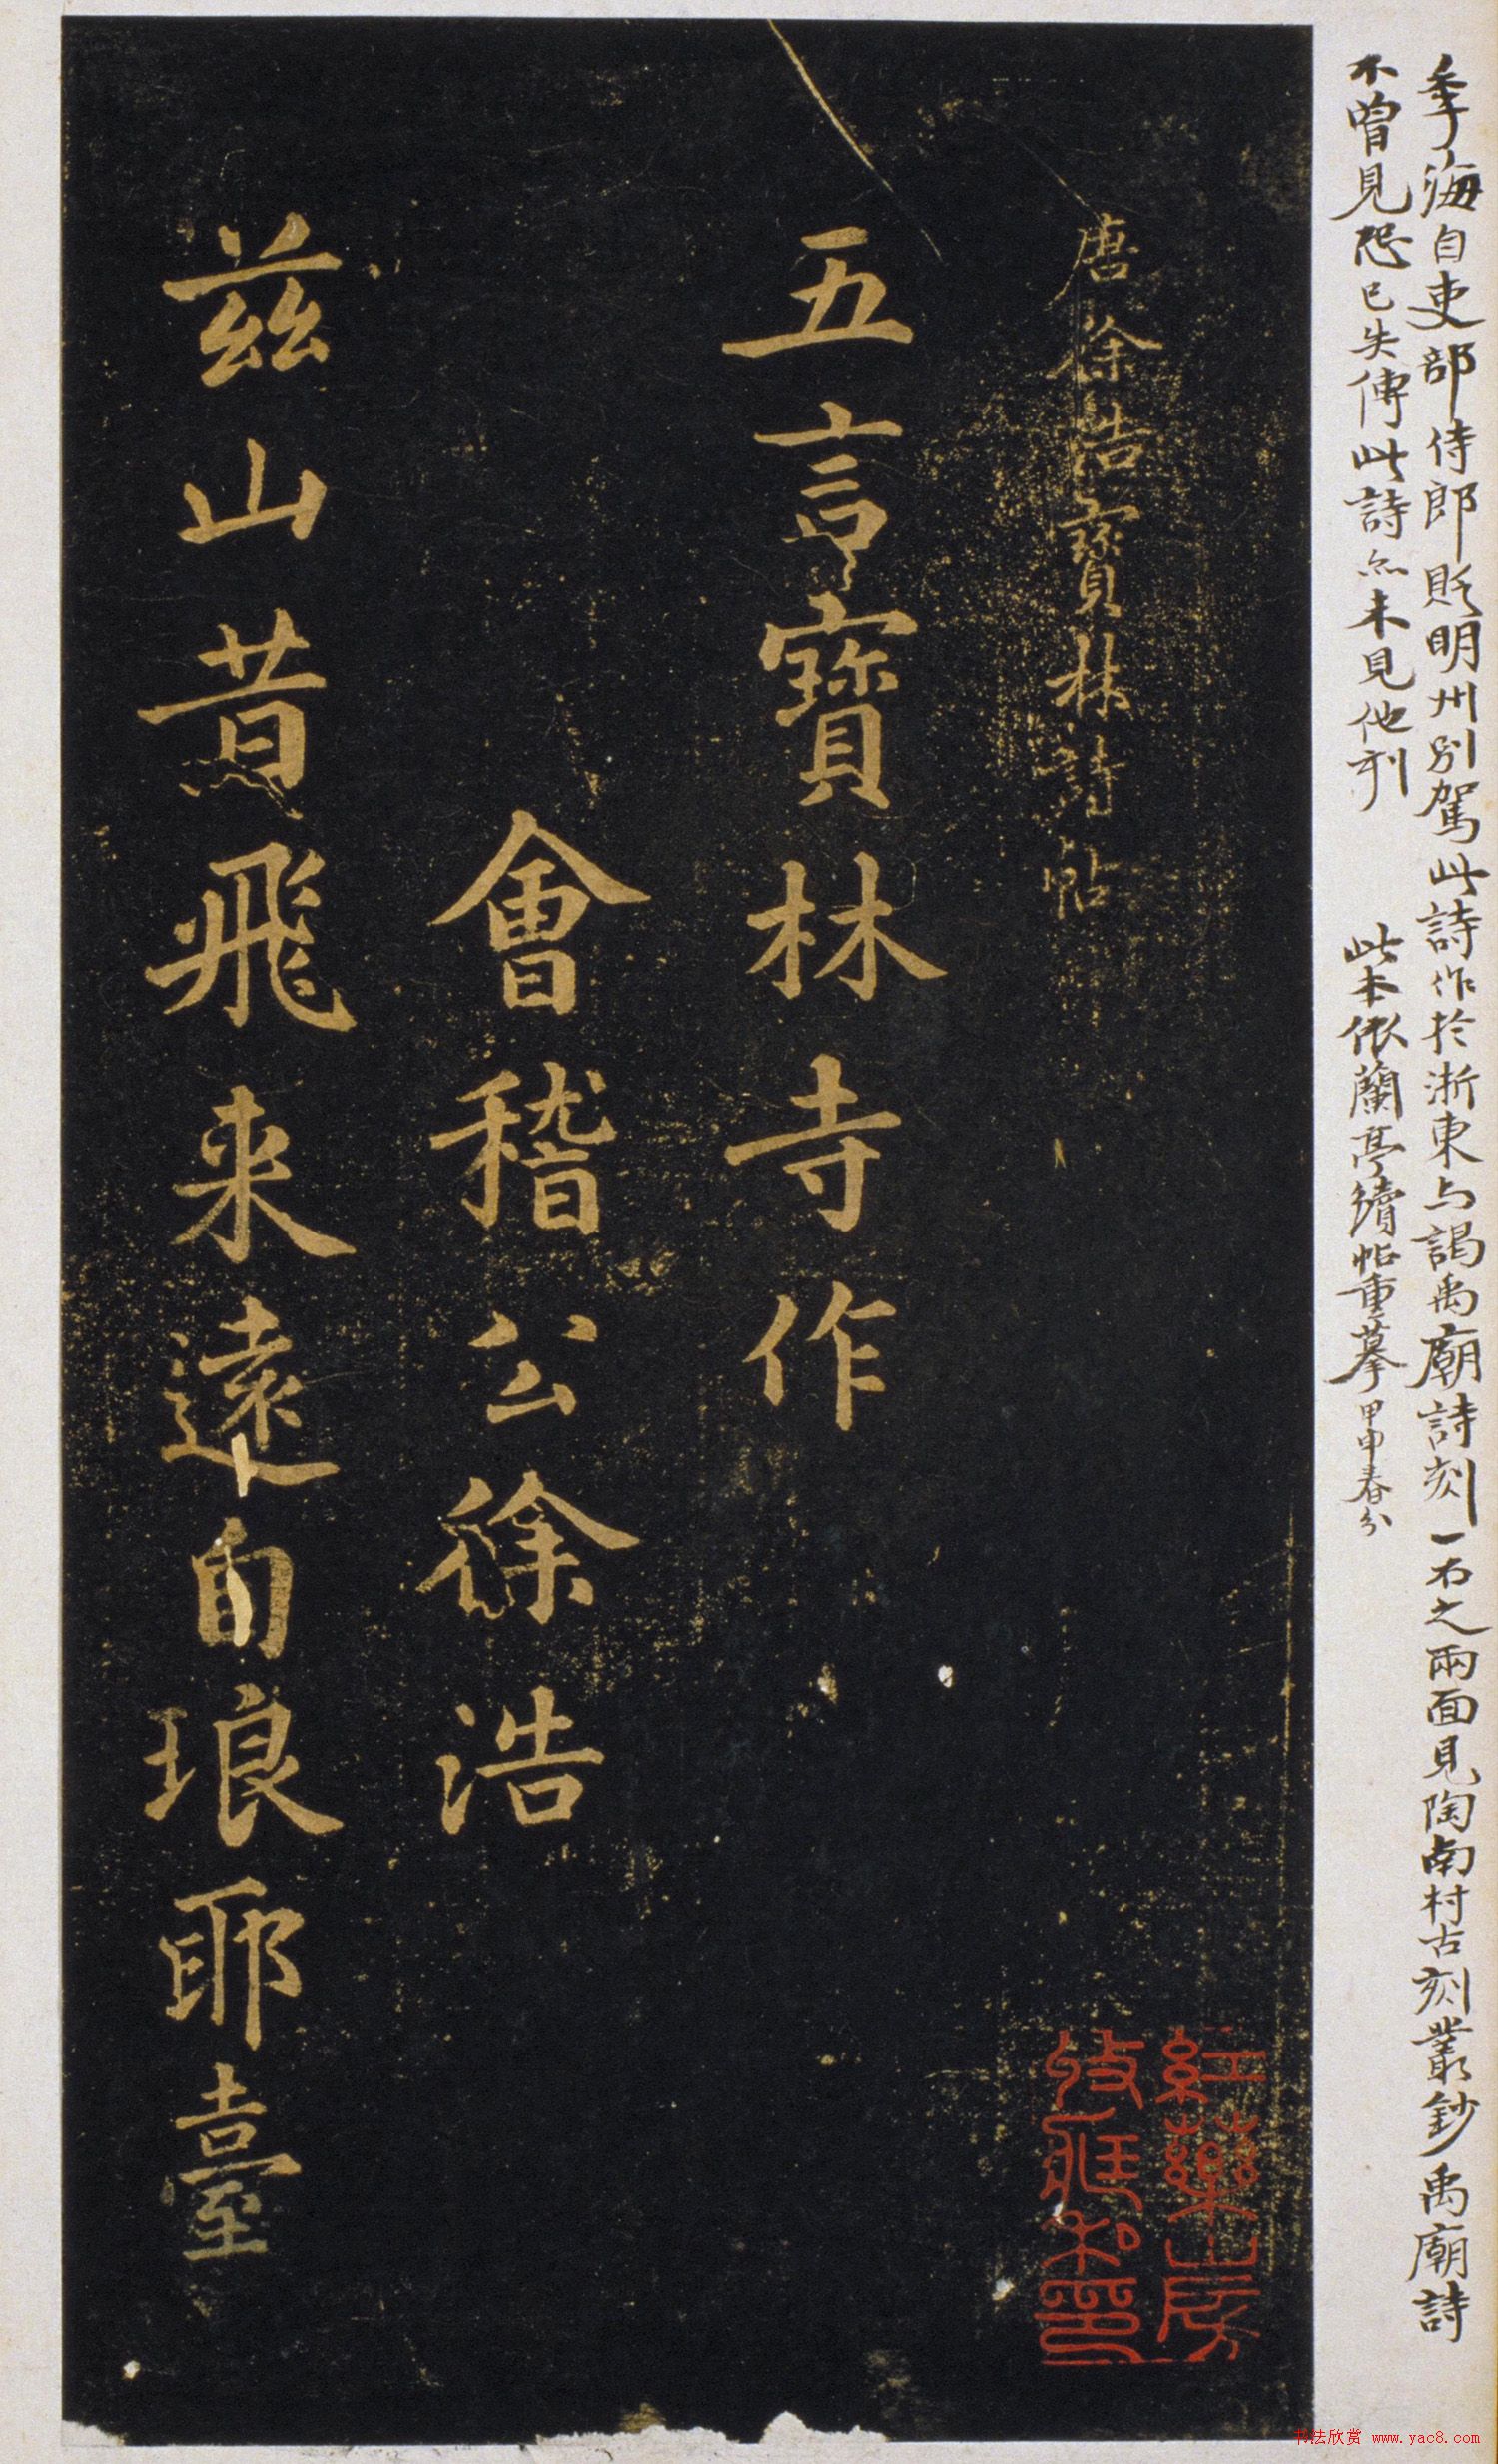 季海自吏部侍郎貶明州別駕此詩作於浙東与謁禹廟詩刻一石之兩面見陶南村古刻叢鈔禹廟詩
不曾見恐已失傳此詩亦未見他刻 此本依蘭亭續帖重摹甲申春分
唐徐浩寶林詩帖
五言寶林寺作
會稽公徐浩
茲山昔飛来遠自琅耶臺
紅藥山房
收藏私印
书法欣赏 www.yac8.com